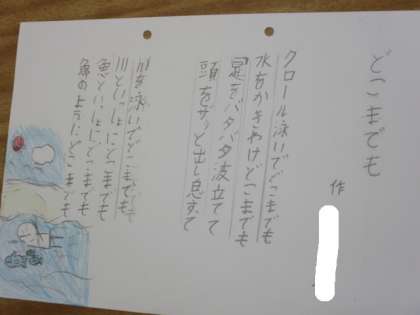 どこまでも
作
クロール泳いでどこまでも
水をかきわけどこまでも
足をバタバタ波立てて
頭をザッと出し息すって
川を泳いでどこまでも
川といっしょにどこまでも
魚といっしょにどこまでも
魚のようにどこまでも